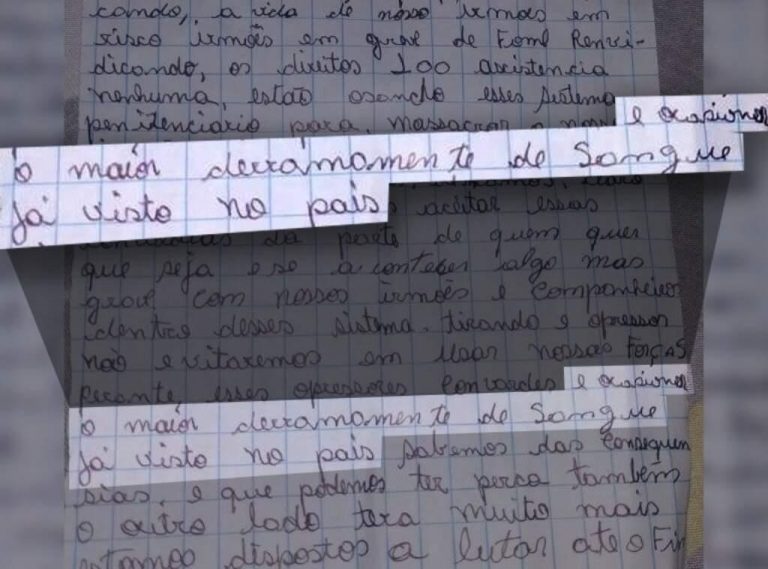 cando, a vida de nosso irmões em
risco irmões em grave de Fome Renvi-
dicando, os direitos 100 assistencia
nenhuma, estão osando esses sistema
penitenciario para, massacrar e ocasiones
o maior derramamente de Songue
já visto no pais
aceitar essas
da parte de quem quer
que seja e se acontecer algo mas
grave com nossos irmões e Companheiros
dentro desses sistema. tirando e opressor
não evitaremos em Usar nossas FORÇAS
Perante, esses opressores Convardes e ocasiones
o maior derramamente de Songue
já visto no pais sabemos das Consequen
sias, e que podemos ter perca também
o outro lado tera muito mais
estamos dispostos a lutar até o Fin